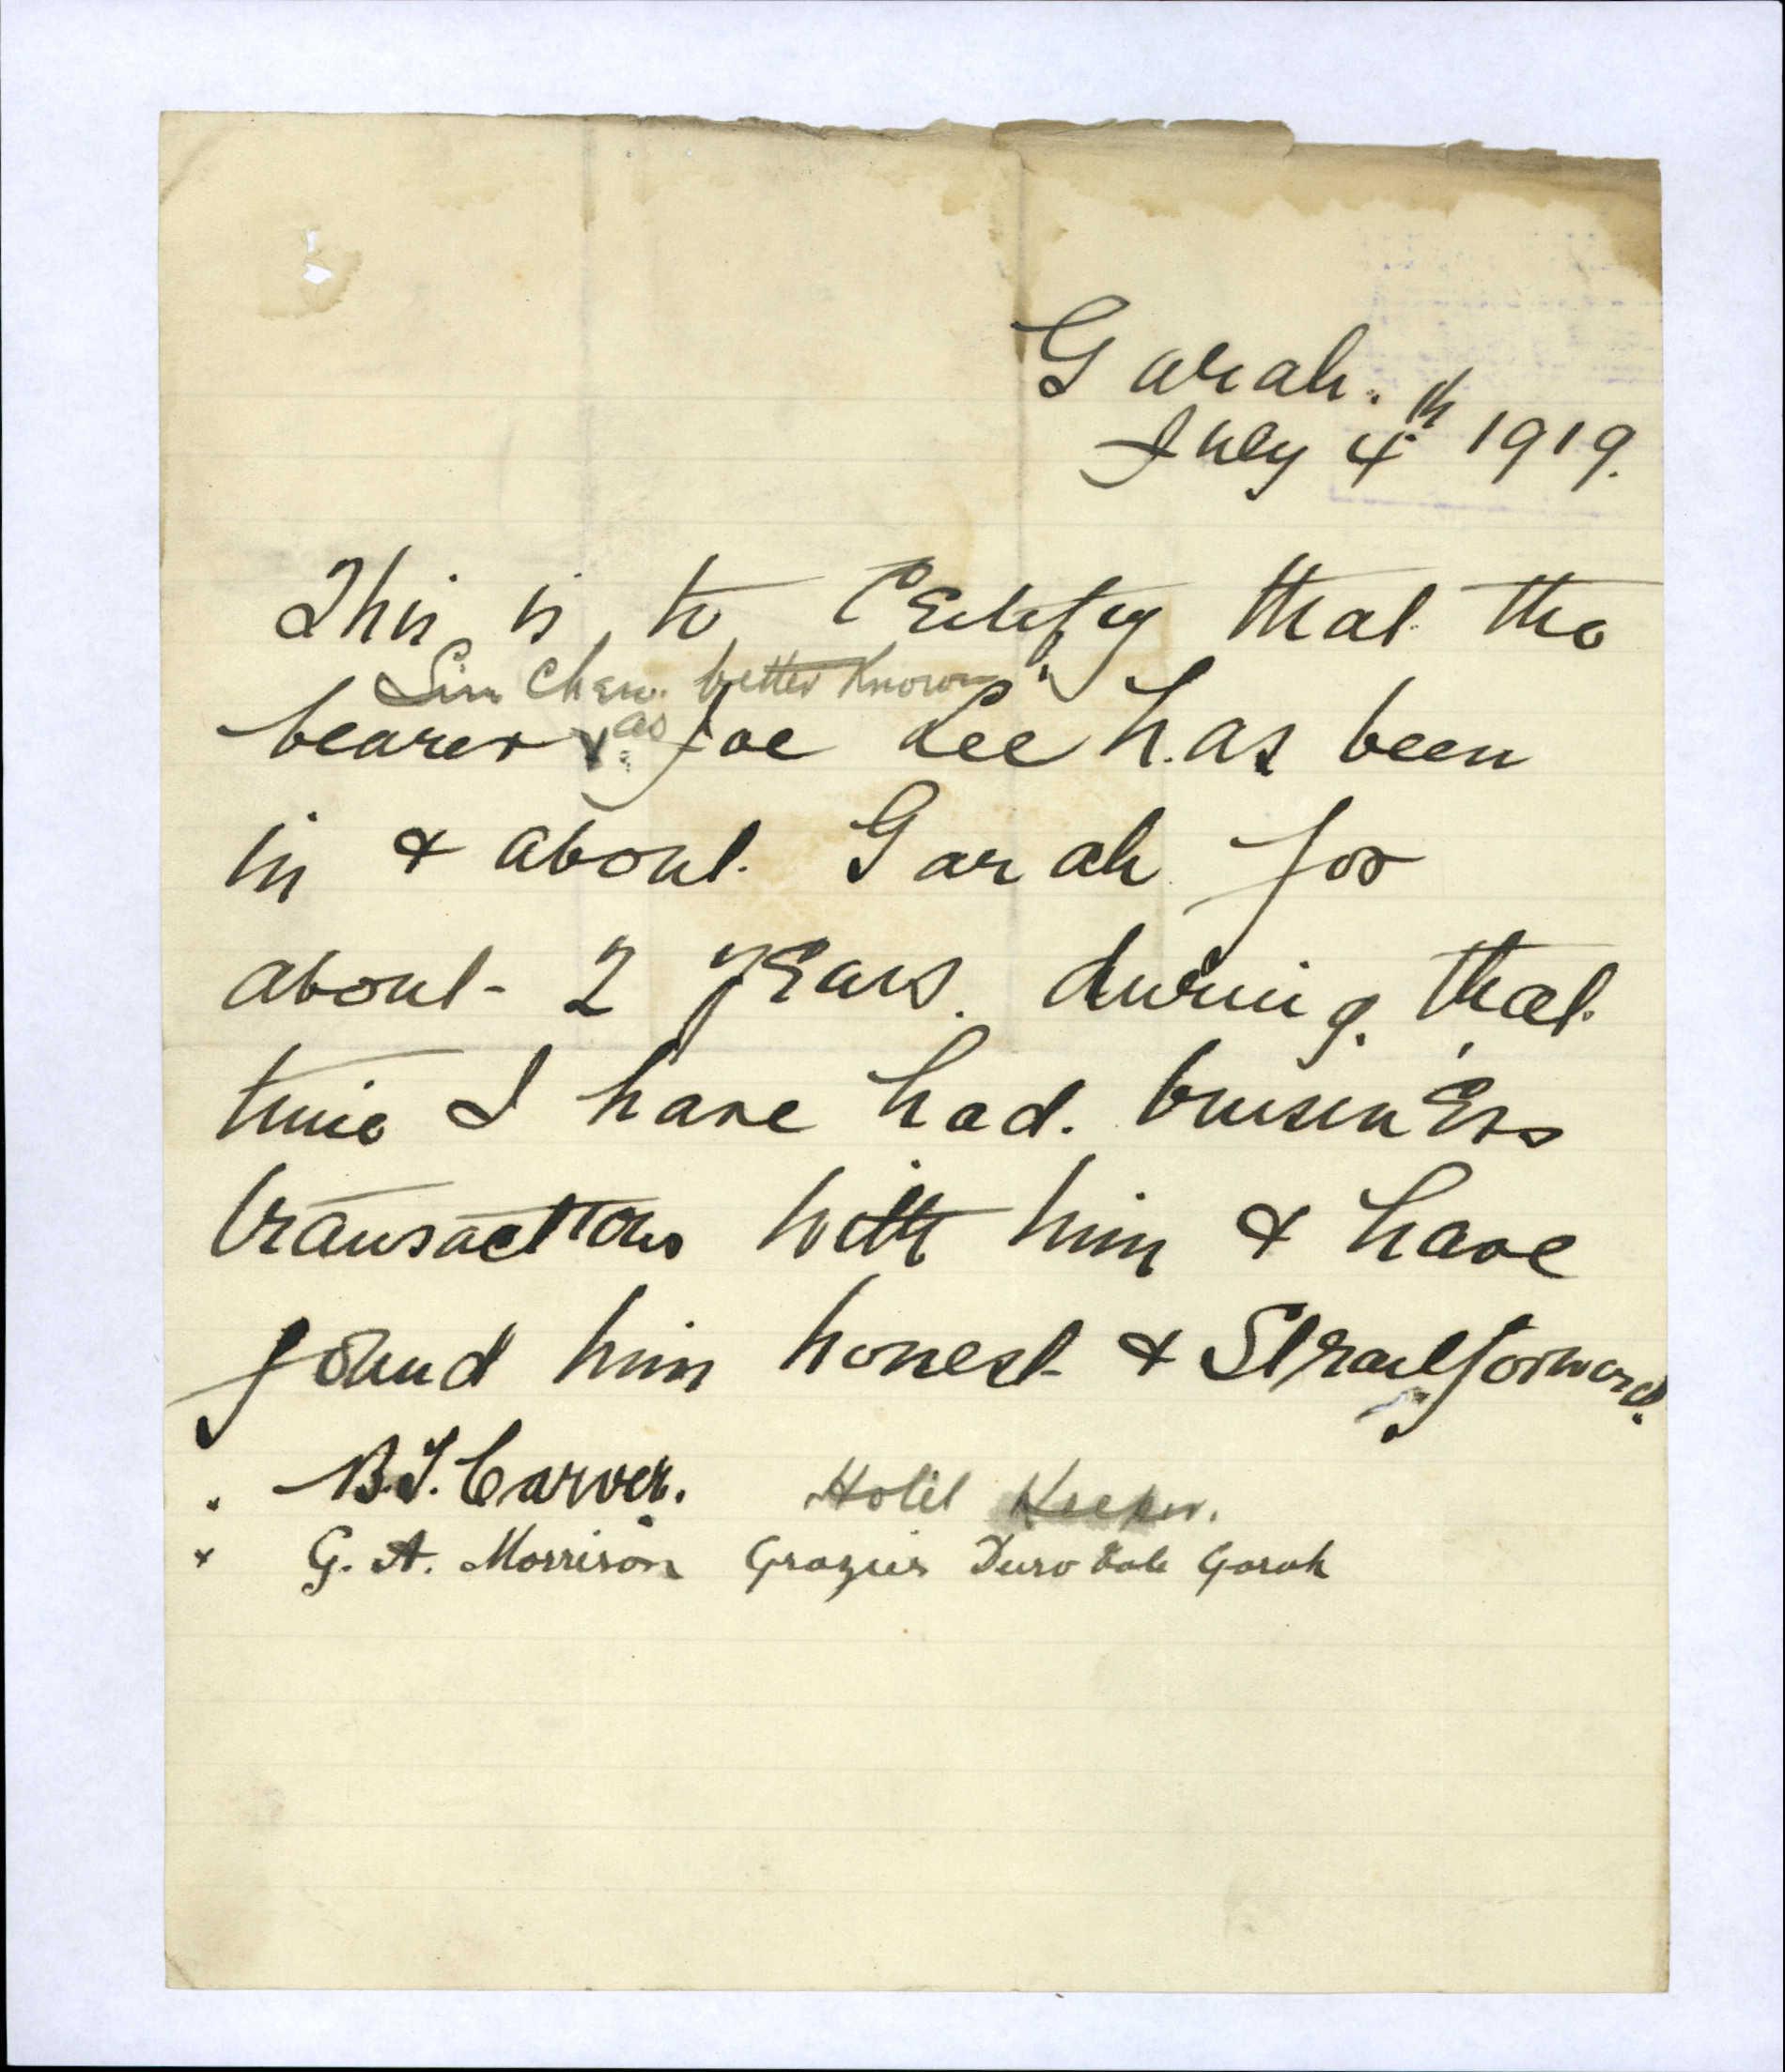 Garah.
July 4th 1919.
This is to Certify that the
Sim Chew. better Known
as
bearer Joe Lee has been
in & about Garah for
about 2 years. during that
time I have had. business
transactions with him & have
found him honest & Straitforward.
B.T. Carver. Hotel Keeper.
G. A. Morrison Grazier Garah